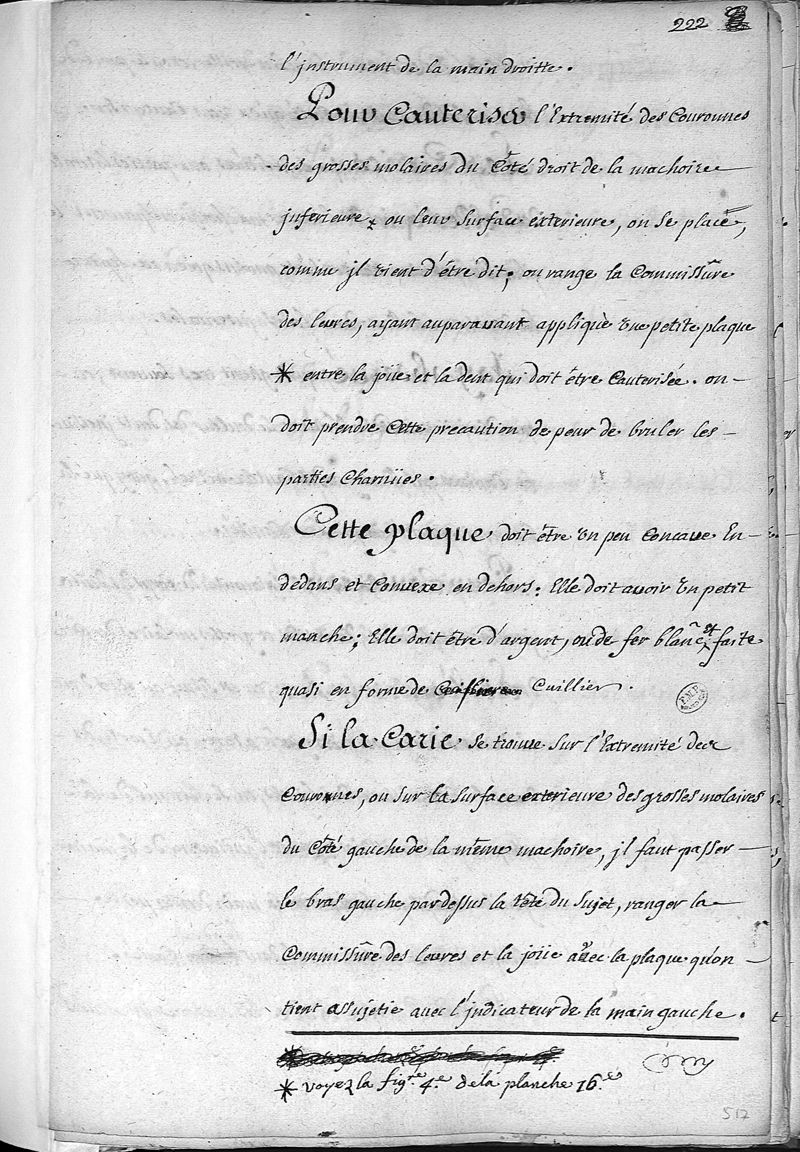 222
l'instrument de la main droitte.
Pour Cauteriser l'Extremité des Couronnes
des grosses molaires du Côté droit de la machoire
inferieure, ou leur surface exterieure, on se place,
comme jl vient d'être dit; on range la Commissure
des levres, ayant auparavant appliqué une petite plaque
* entre la joüe et la dent qui doit être Cauterisée. on
doit prendre Cette precaution de peur de bruler les
parties Charnües.
Cette plaque doit être un peu Concave En
dedans et Convexe en dehors; Elle doit avoir un petit
manche; Elle doit être d'argent, ou de fer blanc, et faite
quasi en forme de Cuillier.
Si la Carie se trouve sur l'Extremité des
Couronnes, ou sur la surface exterieure des grosses molaires
du Côté gauche de la même machoire, jl faut passer
le bras gauche par dessus la tête du sujet, ranger la
Commissure des levres et la joüe avec la plaque qu'on
tient assujetie avec l'jndicateur de la main gauche.
* voyez la figre 4.e de la planche 16.e
517